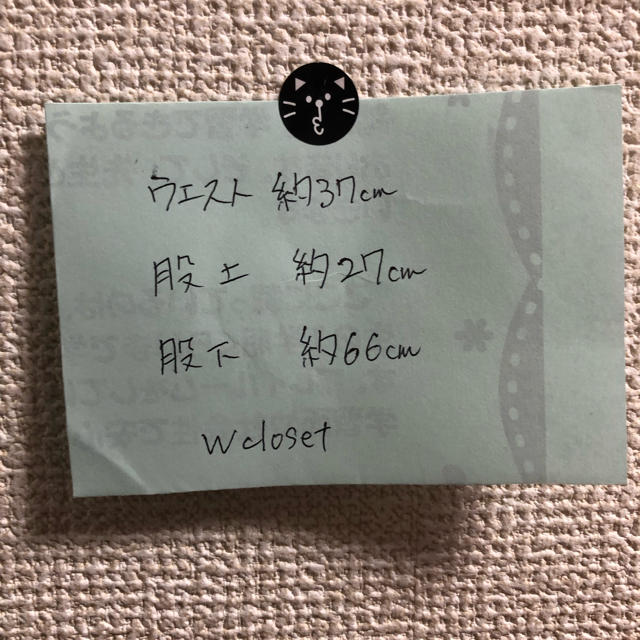 ウエスト 約37cm
股上 約27cm
股下 約66cm
wcloset